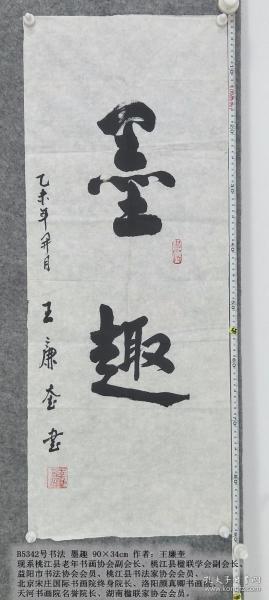 墨趣
乙未年
王廉奎书
B5342号书法 墨趣 90×34cm 作者：王廉奎
现系桃江县老年书画协会副会长、桃江县楹联学会副会长、
益阳市书法协会会员、桃江县书法家协会会员、
北京宋庄国际书画院终身院长、洛阳颜真卿书画院、
天河书画院名誉院长、湖南楹联家协会会员。